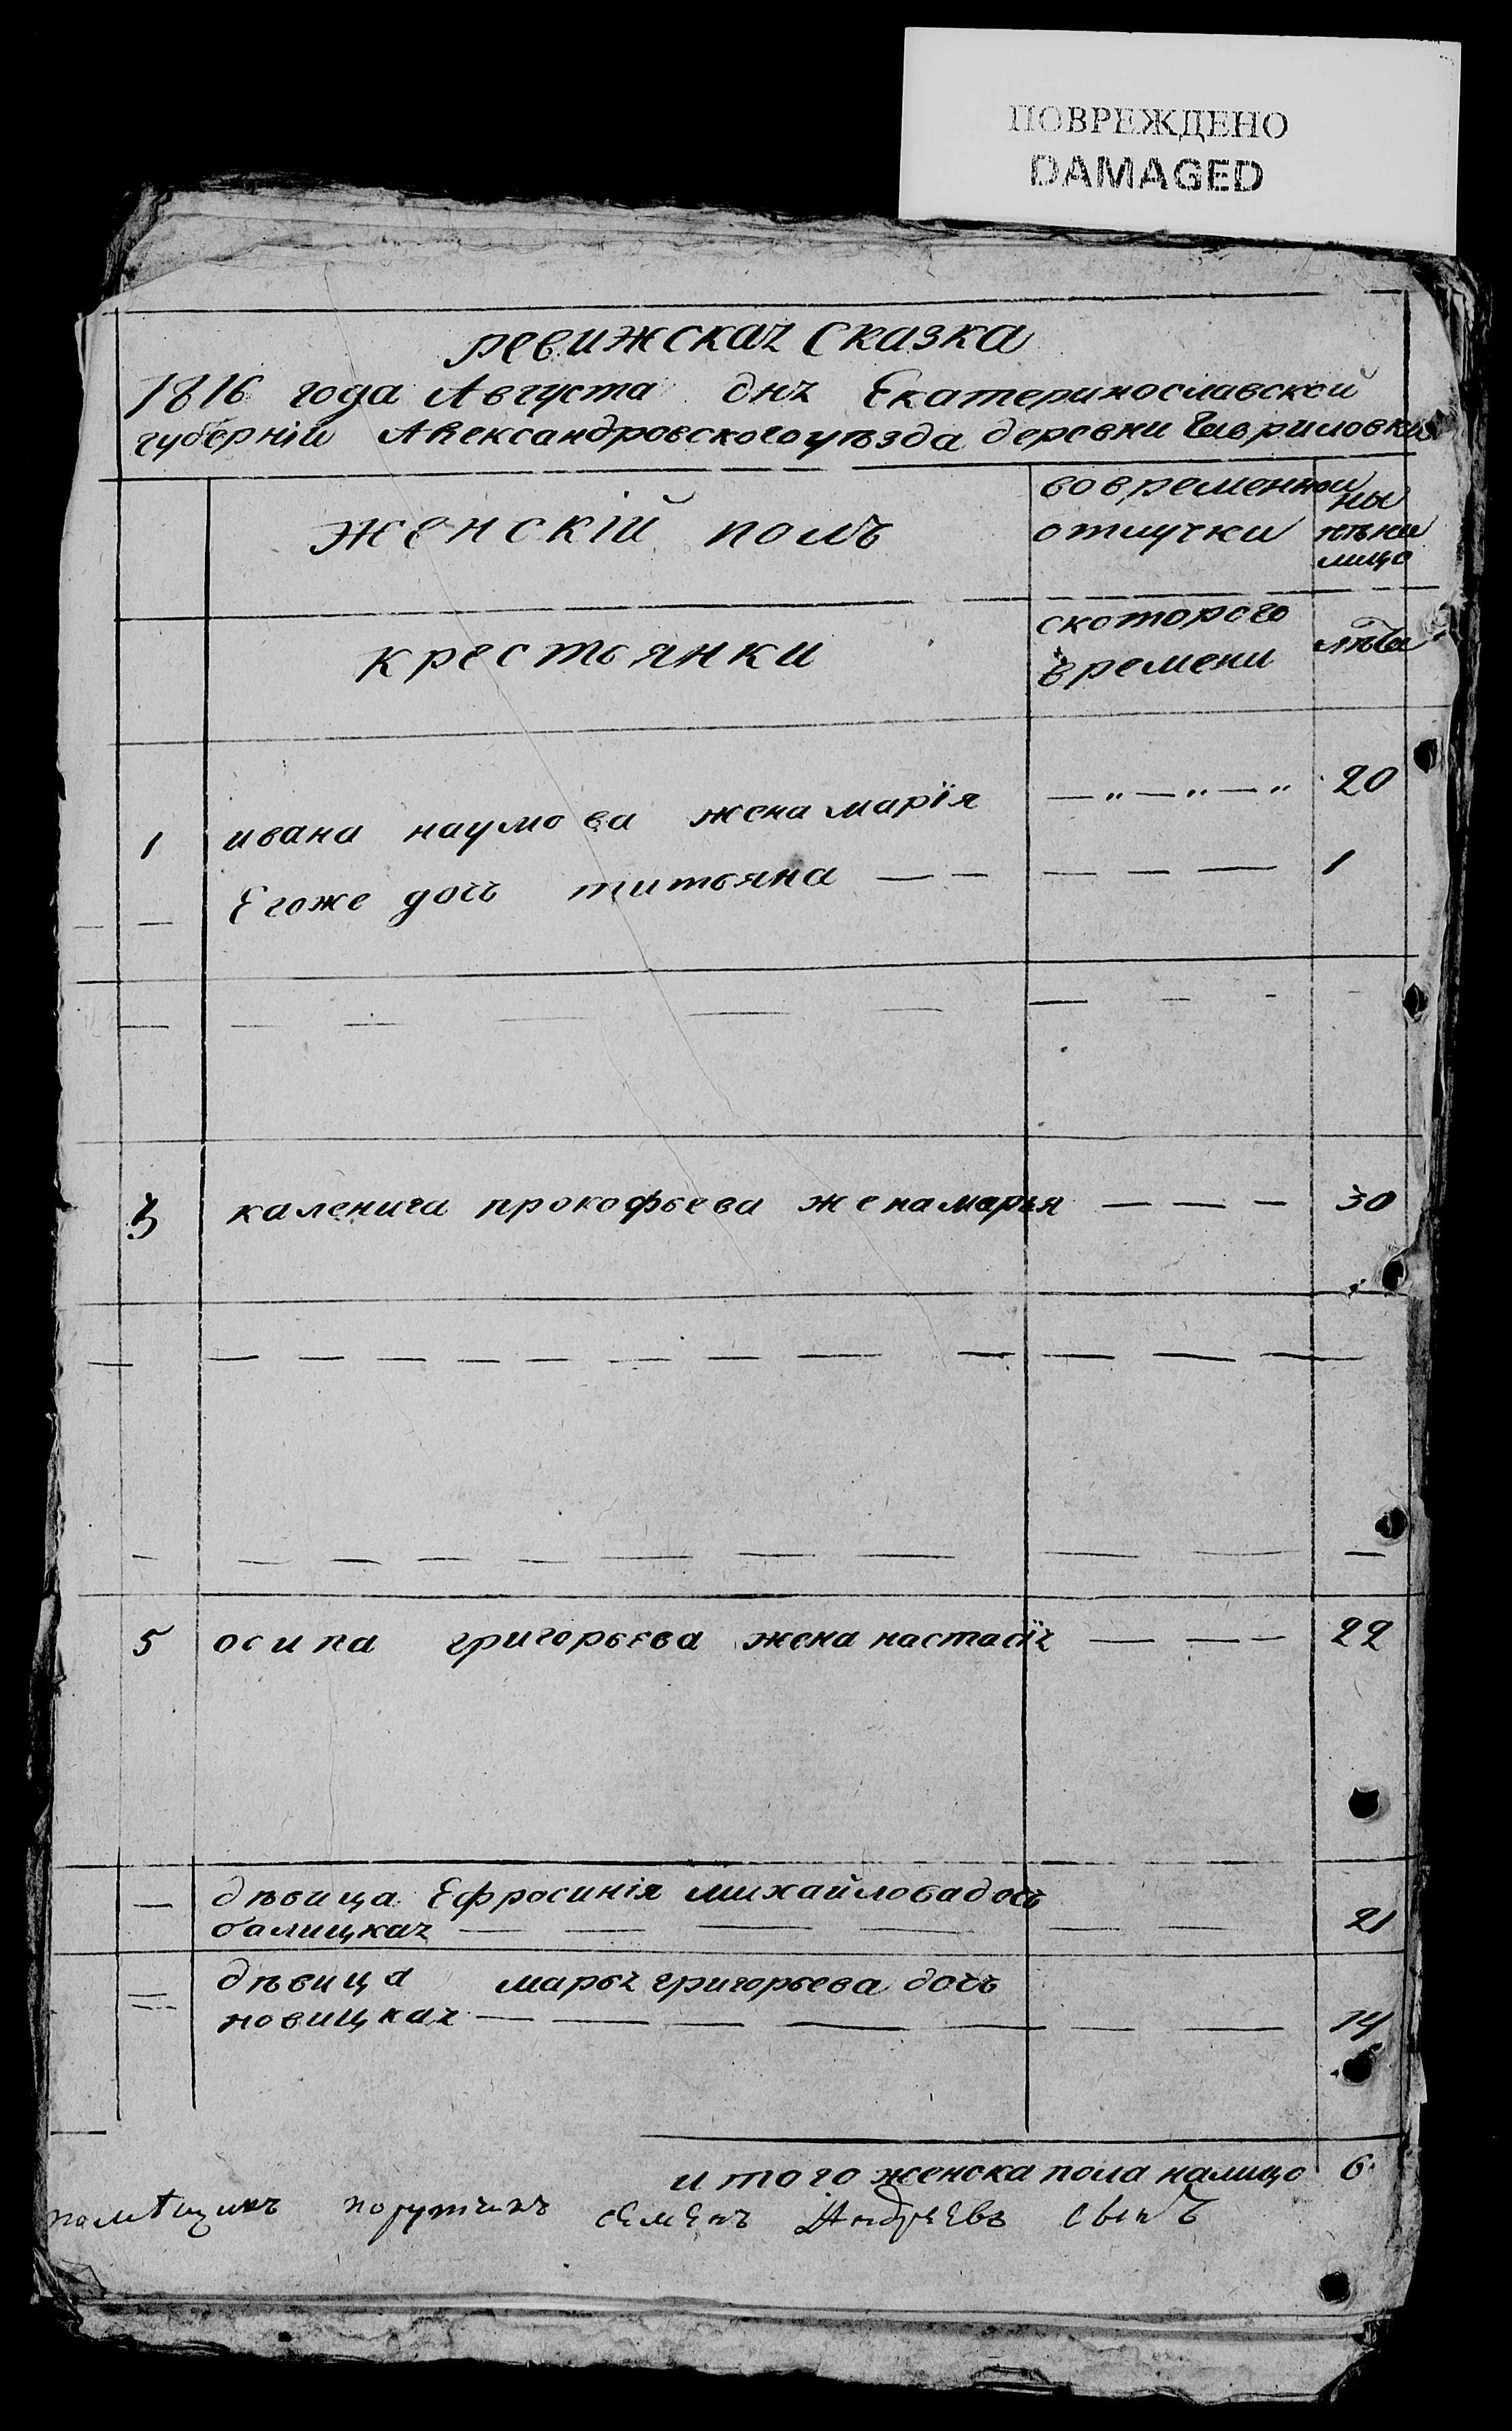 ПОВРЕЖДЕНО
DAMAGED
ревижская сказка
1816 года Августа дня Екатеринославской
губерній Александровского уѣзда деревни Гавриловки
женскій полъ
вовременной
отлучки
ны
нѣ на
лицо
крестьянки
скоторого
времени
лѣта
1 ивана наумова жена марїя — „ — „ — „ 20
— Егоже дочь титьяна — — — — — 1
3 каленича прокофьева жена марья — — — 30
5 осипа григорьева жена настасїя — — — 22
— дѣвица Ефросинія михайлова дочь
балицкая — — — — — — 21
дѣвица марья григорьева дочь
новицкая — — — — — — — 14
итого женска пола налицо 6
помѣщикъ порутчикъ семенъ Андреевъ сынъ